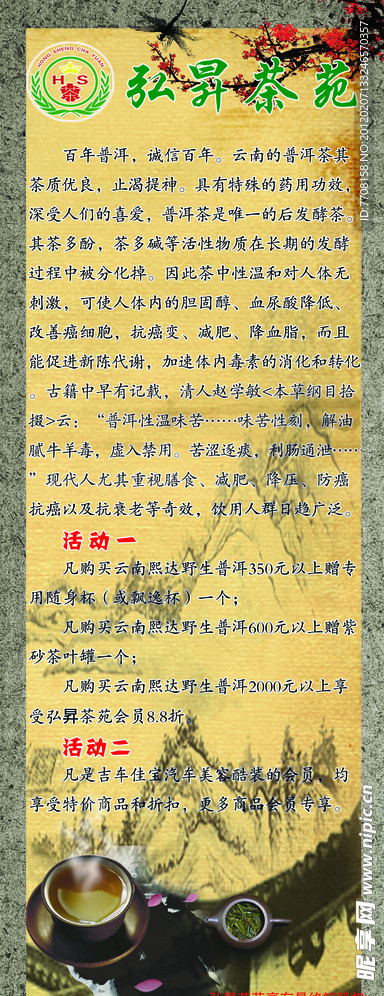 HONG SHENG CHA YUAN
H S
弘昇茶苑
百年普洱，诚信百年。云南的普洱茶其
茶质优良，止渴提神。具有特殊的药用功效，
深受人们的喜爱，普洱茶是唯一的后发酵茶。
其茶多酚，茶多碱等活性物质在长期的发酵
过程中被分化掉。因此茶中性温和对人体无
刺激，可使人体内的胆固醇、血尿酸降低、
改善癌细胞，抗癌变、减肥、降血脂，而且
能促进新陈代谢，加速体内毒素的消化和转化
。古籍中早有记载，清人赵学敏<本草纲目拾
掇>云：“普洱性温味苦……味苦性刻，解油
腻牛羊毒，虚入禁用。苦涩逐痰，利肠通泄……
”现代人尤其重视膳食、减肥、降压、防癌
抗癌以及抗衰老等奇效，饮用人群日趋广泛。
活动一
凡购买云南熙达野生普洱350元以上赠专
用随身杯（或飘逸杯）一个；
凡购买云南熙达野生普洱600元以上赠紫
砂茶叶罐一个；
凡购买云南熙达野生普洱2000元以上享
受弘昇茶苑会员8.8折。
活动二
凡是吉车佳宝汽车美容酷装的会员，均
享受特价商品和折扣，更多商品会员专享。
ID:7708158 NO:20120207133246570357
昵享网 www.nipic.cn